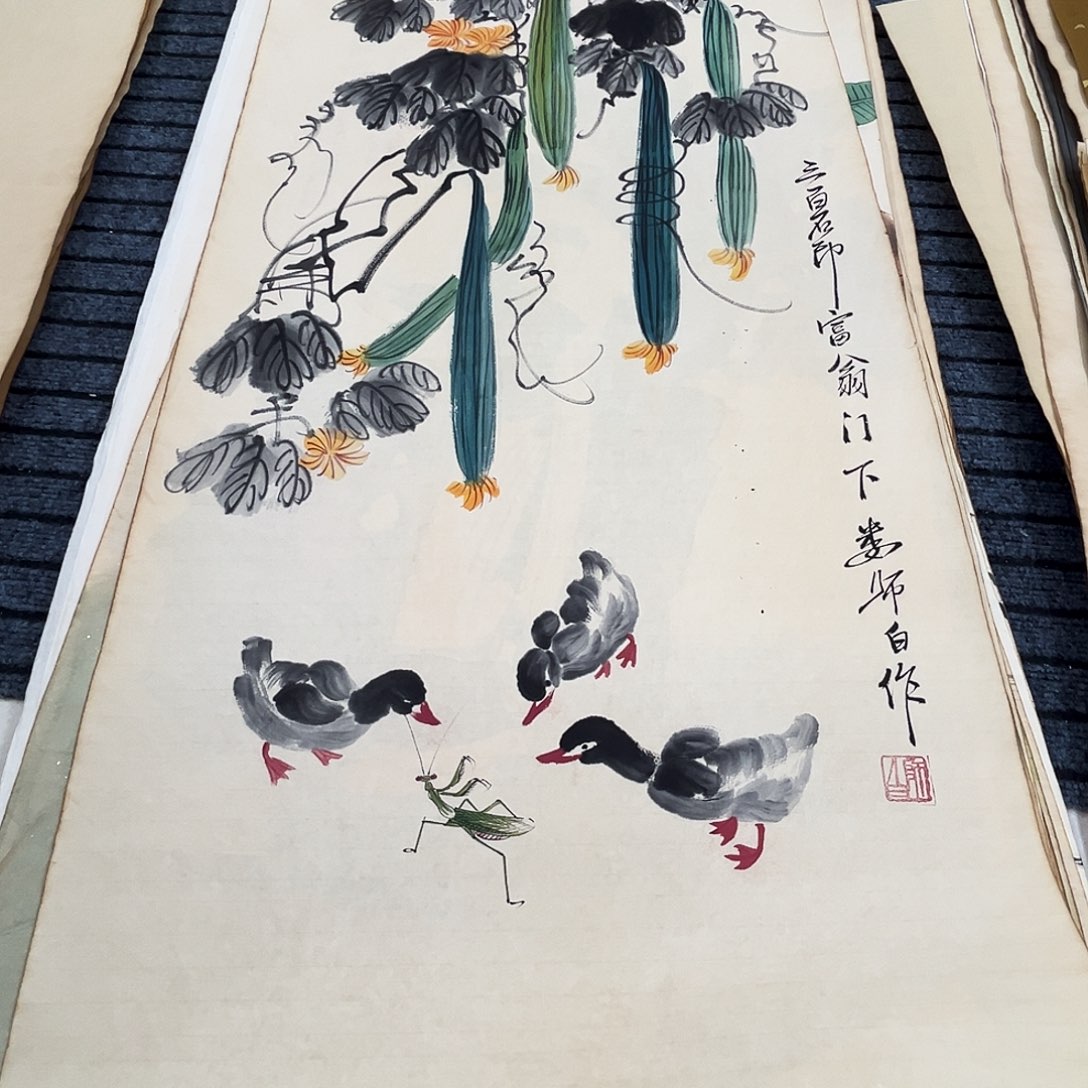 三百石印富翁门下娄师白作